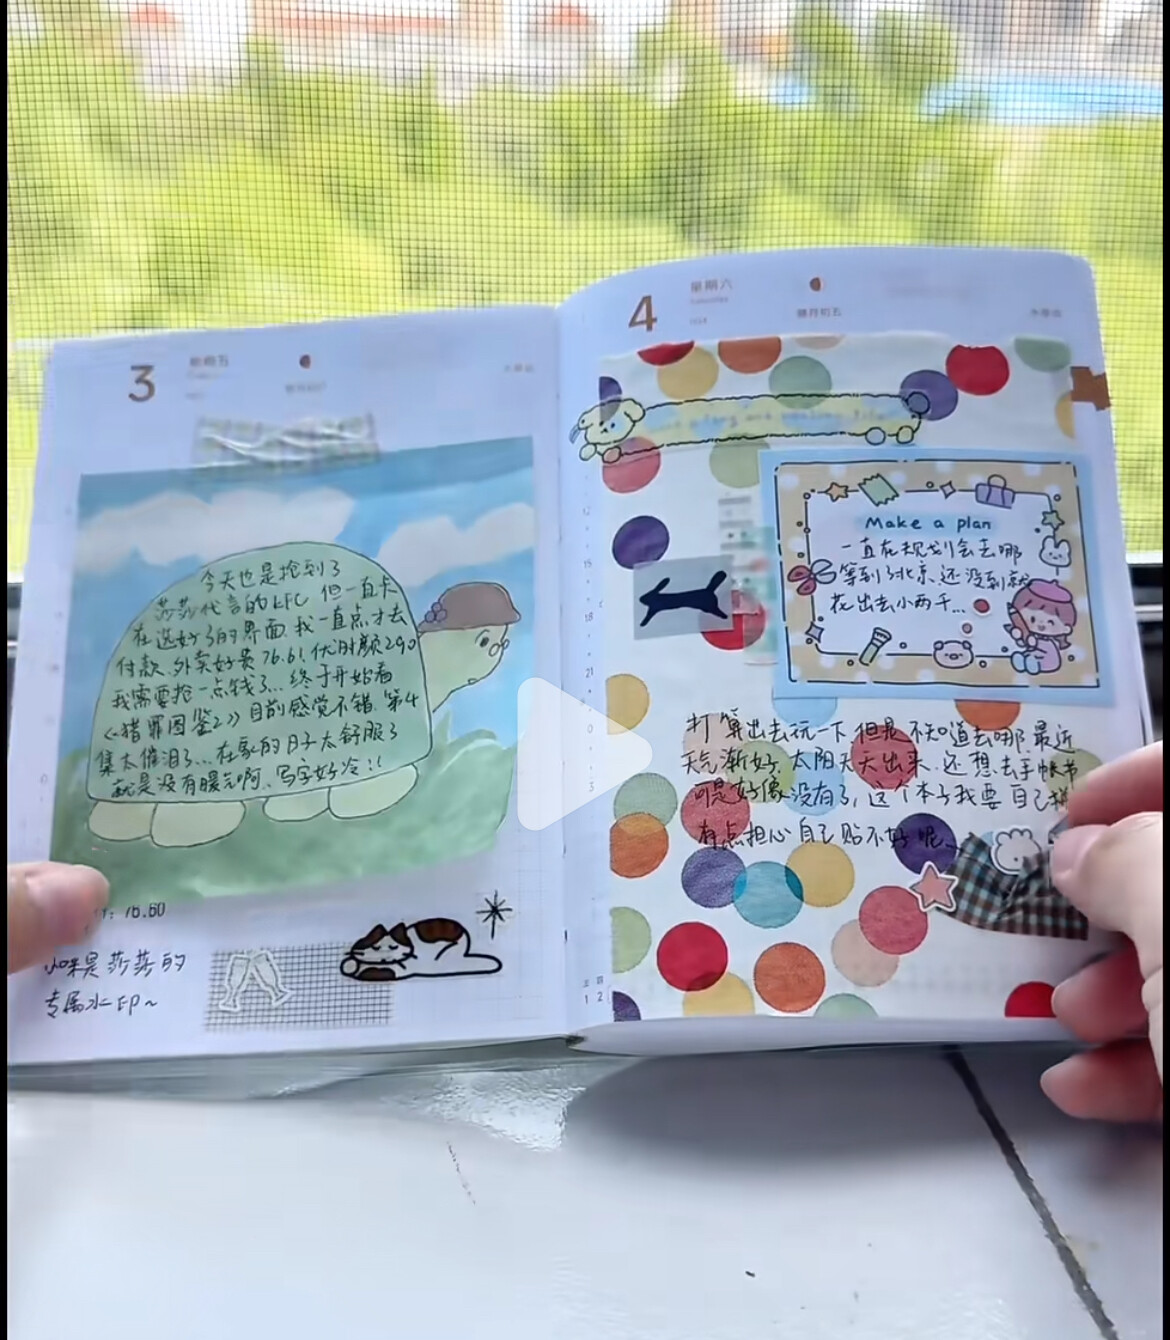 3
今天也是抢到了
莎莎代言的KFC 但一直卡
在选好了的界面.我一直点才去
付款.外卖好贵76.6!,优酷颜290
我需要抢一点钱了...终于开始看
《猎罪图鉴2》目前感觉不错.第4
集太催泪了...在家的日子太舒服了
就是没有暖气啊.写字好冷!!
76.60
莎莎的
专属水印~
4
星期六
腊月初五
Make a plan
一直在规划会去哪
等到了北京.还没到就
花出去小两千...
打算出去玩一下但是不知道去哪.最近
天气渐好.太阳天天出来.还想去手帐节
可是好像没有了,这个本子我要自己
有点担心自己贴不好呢